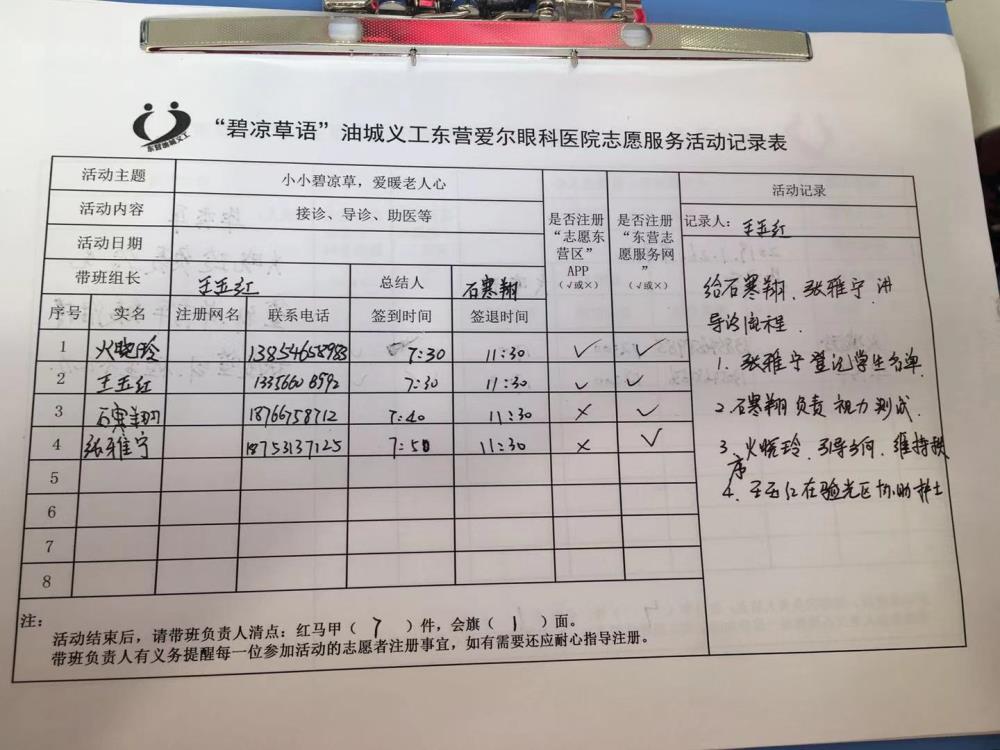 东营油城义工
“碧凉草语”油城义工东营爱尔眼科医院志愿服务活动记录表
活动主题 小小碧凉草，爱暖老人心
活动内容 接诊、导诊、助医等
活动日期
带班组长 王玉红 总结人 石寒翔
是否注册“志愿东营区”APP（√或×）
是否注册“东营志愿服务网”（√或×）
序号 实名 注册网名 联系电话 签到时间 签退时间
1 火晓玲 13854658983 7:30 11:30 √ √
2 王玉红 1335660 8592 7:30 11:30 √ √
3 石寒翔 18766758712 7:40 11:30 × √
4 张雅宁 18753137125 7:50 11:30 × √
5
6
7
8
活动记录
记录人：王玉红
给石寒翔、张雅宁讲
导诊流程.
1、张雅宁登记学生名单
2、石寒翔负责视力测试.
3、火晓玲、引导方向、维持秩
序
4、王玉红在验光区协助护士
注：
活动结束后，请带班负责人清点：红马甲（ 7 ）件，会旗（ 1 ）面。
带班负责人有义务提醒每一位参加活动的志愿者注册事宜，如有需要还应耐心指导注册。